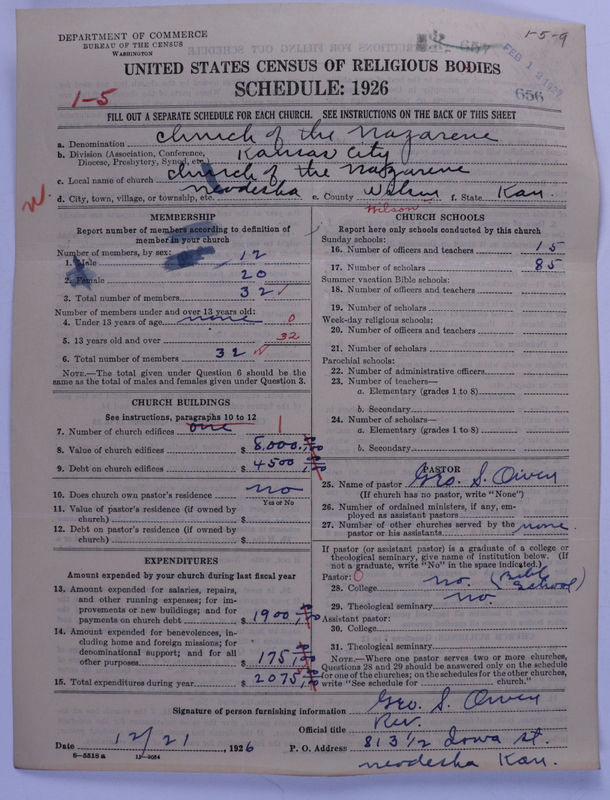 DEPARTMENT OF COMMERCE
BUREAU OF THE CENSUS
WASHINGTON
1-5-9
657
FEB 12 1927
656
UNITED STATES CENSUS OF RELIGIOUS BODIES
SCHEDULE: 1926
1-5
FILL OUT A SEPARATE SCHEDULE FOR EACH CHURCH. SEE INSTRUCTIONS ON THE BACK OF THIS SHEET
a. Denomination Church of the Nazarene
b. Division (Association, Conference, Diocese, Presbytery, Synod, etc.) Kansas City
c. Local name of church Church of the Nazarene
d. City, town, village, or township, etc. Neodesha e. County Wilson f. State Kan.
W.
Wilson
MEMBERSHIP
Report number of members according to definition of member in your church
Number of members, by sex:
1. Male 12
2. Female 20
3. Total number of members 32
Number of members under and over 13 years old:
4. Under 13 years of age none 0
5. 13 years old and over 32
6. Total number of members 32
NOTE.—The total given under Question 6 should be the same as the total of males and females given under Question 3.
CHURCH BUILDINGS
See instructions, paragraphs 10 to 12
7. Number of church edifices one 1
8. Value of church edifices $ 8,000.00
9. Debt on church edifices $ 4500.00
10. Does church own pastor's residence no
Yes or No
11. Value of pastor's residence (if owned by church) $
12. Debt on pastor's residence (if owned by church) $
EXPENDITURES
Amount expended by your church during last fiscal year
13. Amount expended for salaries, repairs, and other running expenses; for improvements or new buildings; and for payments on church debt $ 1900.00
14. Amount expended for benevolences, including home and foreign missions; for denominational support; and for all other purposes $ 175.00
15. Total expenditures during year $ 2075.00
CHURCH SCHOOLS
Report here only schools conducted by this church
Sunday schools:
16. Number of officers and teachers 15
17. Number of scholars 85
Summer vacation Bible schools:
18. Number of officers and teachers
19. Number of scholars
Week-day religious schools:
20. Number of officers and teachers
21. Number of scholars
Parochial schools:
22. Number of administrative officers
23. Number of teachers—
a. Elementary (grades 1 to 8)
b. Secondary
24. Number of scholars—
a. Elementary (grades 1 to 8)
b. Secondary
PASTOR
25. Name of pastor Geo. S. Owen
(If church has no pastor, write "None")
26. Number of ordained ministers, if any, employed as assistant pastors
27. Number of other churches served by the pastor or his assistants none.
If pastor (or assistant pastor) is a graduate of a college or theological seminary, give name of institution below. (If not a graduate, write "No" in the space indicated.)
Pastor: 0
28. College no. (Bible School)
29. Theological seminary no.
Assistant pastor:
30. College
31. Theological seminary
NOTE.—Where one pastor serves two or more churches, Questions 28 and 29 should be answered only on the schedule for one of the churches; on the schedules for the other churches, write "See schedule for church."
Signature of person furnishing information Geo. S. Owen
Official title Rev.
Date 12/21, 1926 P. O. Address 813 1/2 Iowa St.
8—5518a
Neodesha Kan.